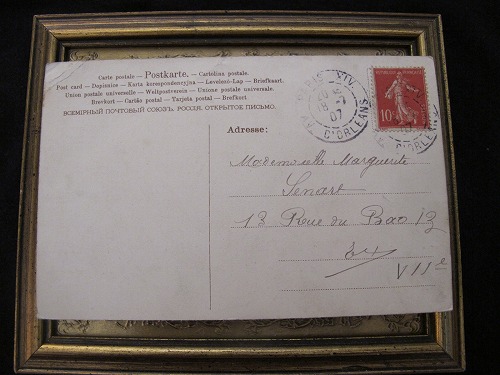 Carte postale — Postkarte. — Cartolina postale.
Post card — Dopisnice — Karta korespondencyjna — Levelező-Lap — Briefkaart.
Union postale universelle — Weltpostverein — Unione postale universale.
Brevkort — Cartão postal — Tarjeta postal — Brefkort
ВСЕМІРНЫЙ ПОЧТОВЫЙ СОЮЗЪ. РОССІЯ. ОТКРЫТОЕ ПИСЬМО.
PARIS - XIV.
07
D'ORLEANS
10
Adresse:
Mademoiselle Marguerite
Senart
13 Rue du Bac 13
VIIe